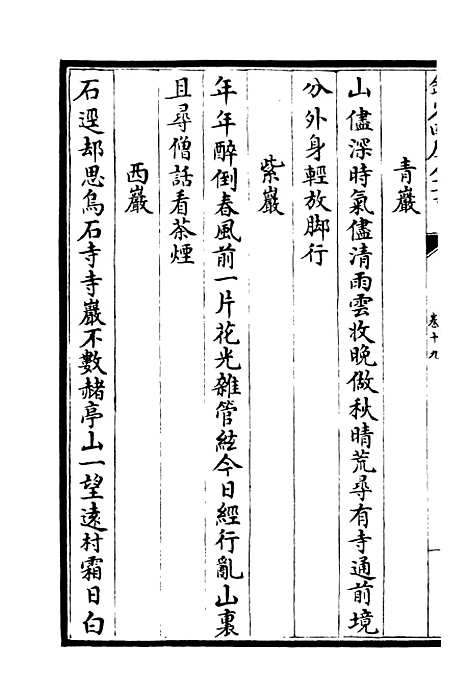 卷十九
青巖
山儘深時氣儘清雨雲收晚做秋晴荒尋有寺通前境
分外身輕放脚行
紫巖
年年醉倒春風前一片花光雜管絃今日經行亂山裏
且尋僧話看茶煙
西巖
石逕却思烏石寺寺巖不數赭亭山一望遠村霜日白